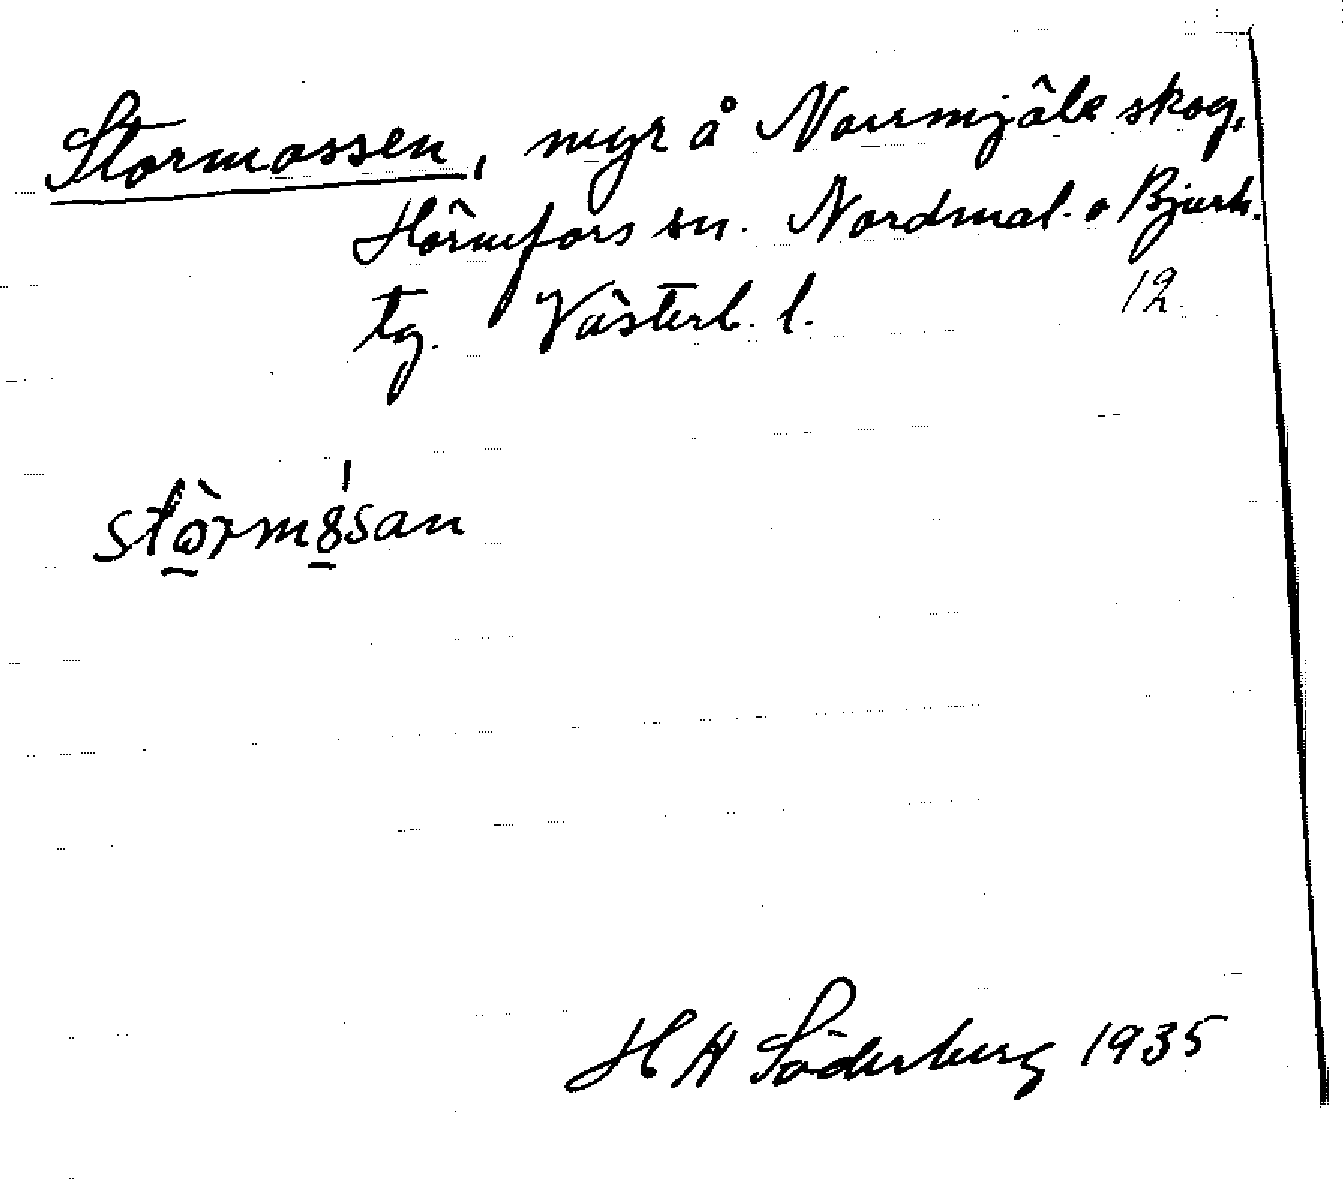 Stormossen, myr å Norrmjöle skog,
Hörnefors sn. Nordmal. o Bjurh.
tg. Västerb. l. 12.
stòrmósan
H A Söderberg 1935